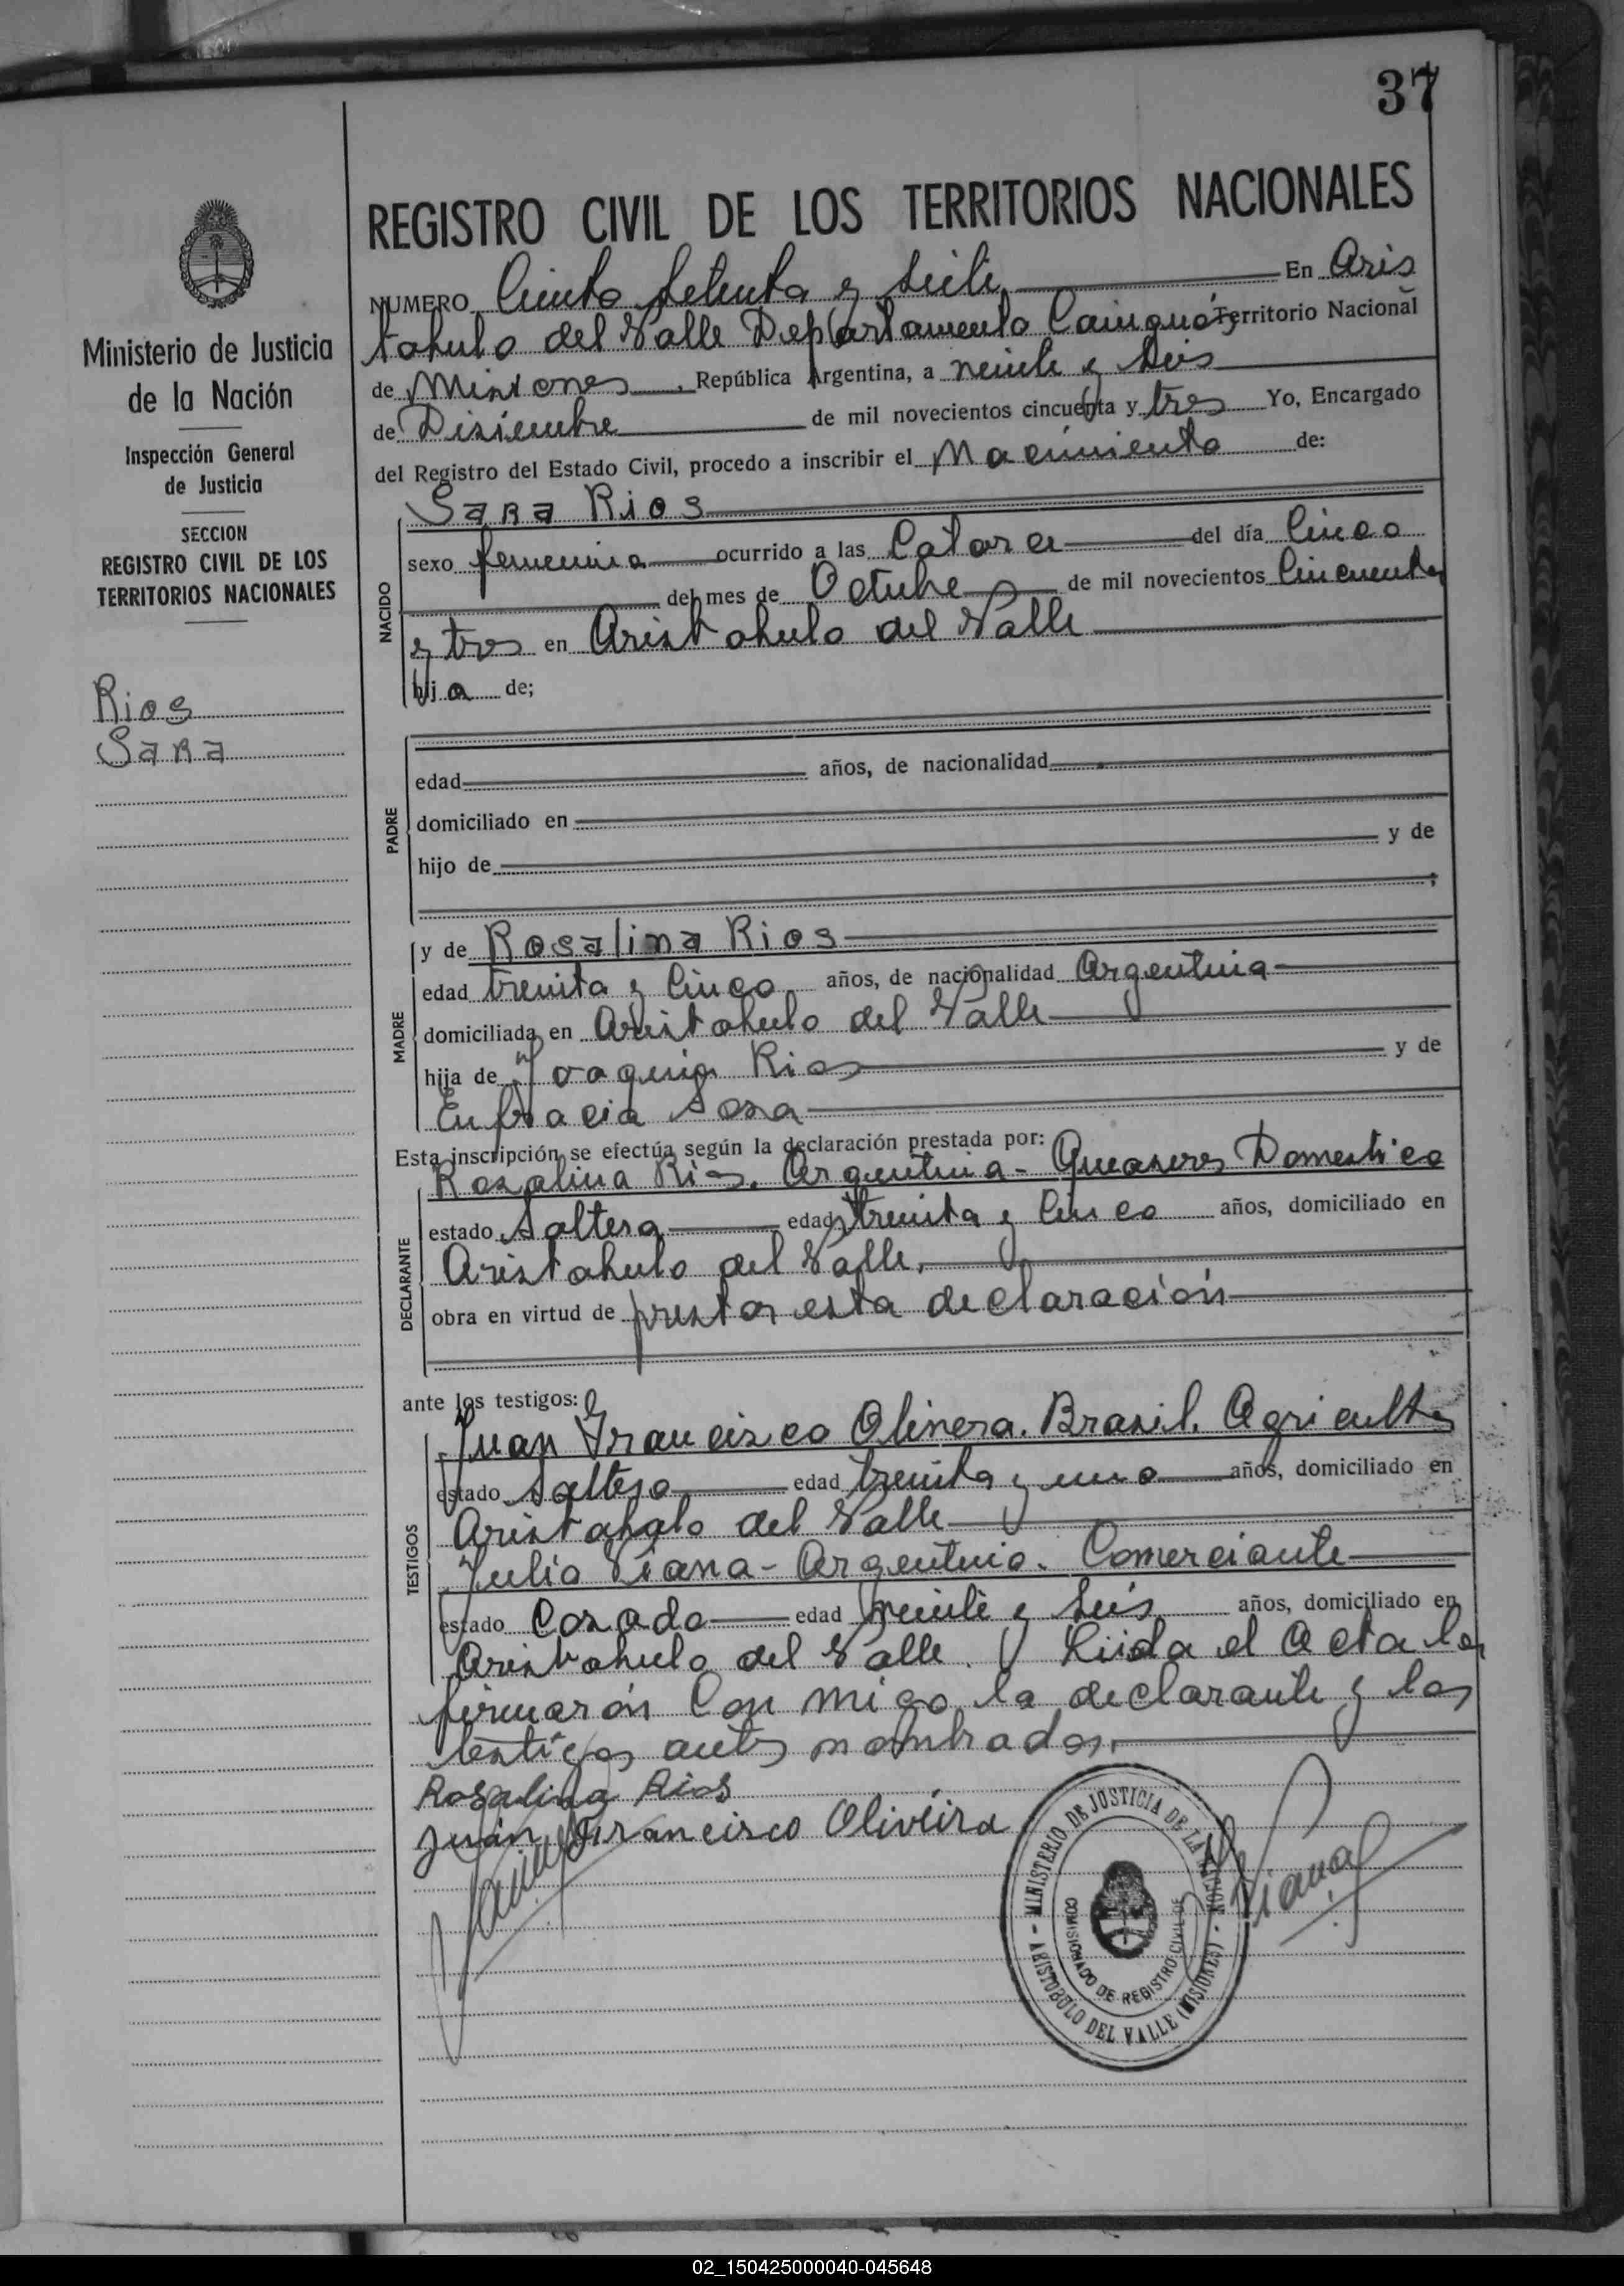 37
REGISTRO CIVIL DE LOS TERRITORIOS NACIONALES
NUMERO Ciento setenta y siete En Aris
tobulo del Valle Departamento Cainguás Territorio Nacional
de Misiones, República Argentina, a veinte y seis
de Disiembre de mil novecientos cincuenta y tres Yo, Encargado
del Registro del Estado Civil, procedo a inscribir el Nacimiento de:
Ministerio de Justicia
de la Nación
Inspección General
de Justicia
SECCION
REGISTRO CIVIL DE LOS
TERRITORIOS NACIONALES
Rios
Sara
NACIDO
Sara Rios
sexo femenina ocurrido a las Catorce del día Cinco
del mes de Octubre de mil novecientos Cincuenta
y tres en Aristobulo del Valle
hija de;
PADRE
edad años, de nacionalidad
domiciliado en
hijo de y de
;
MADRE
y de Rosalina Rios
edad treinta y Cinco años, de nacionalidad Argentina
domiciliada en Aristobulo del Valle
hija de Joaquin Rios y de
Eufracia Sosa
Esta inscripción se efectúa según la declaración prestada por:
DECLARANTE
Rosalina Rios. Argentina - Queaseres Domestico
estado Soltera edad treinta y Cinco años, domiciliado en
Aristobulo del Valle.
obra en virtud de prestar esta declaración
ante los testigos:
TESTIGOS
Juan Francisco Olivera. Brasil. Agricultor
estado Soltero edad treinta y uno años, domiciliado en
Aristobulo del Valle
Julio Viana - Argentino. Comerciante
estado Casado edad veinte y seis años, domiciliado en
Aristobulo del Valle. Leida el Acta la
firmarón Con migo la declarante y los
testigos antes nombrados.
Rosalina Rios
Juan Francisco Oliveira
Viana
MINISTERIO DE JUSTICIA DE LA NACION
COMISIONADO DE REGISTRO CIVIL DE
- ARISTOBULO DEL VALLE (MISIONES) -
02_150425000040-045648